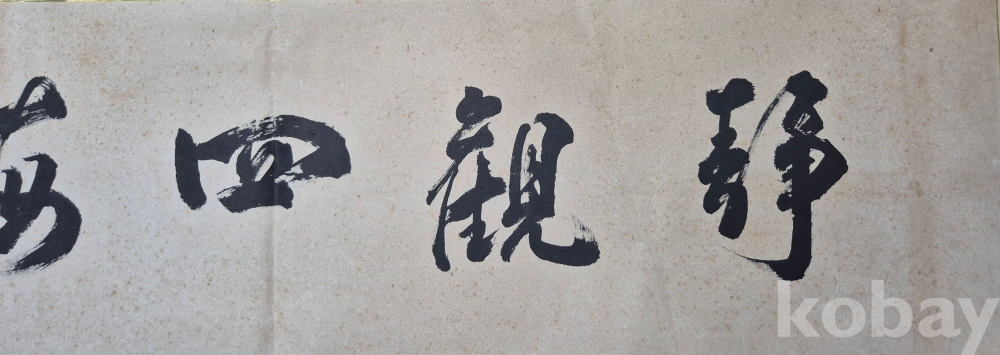 靜觀四海
kobay